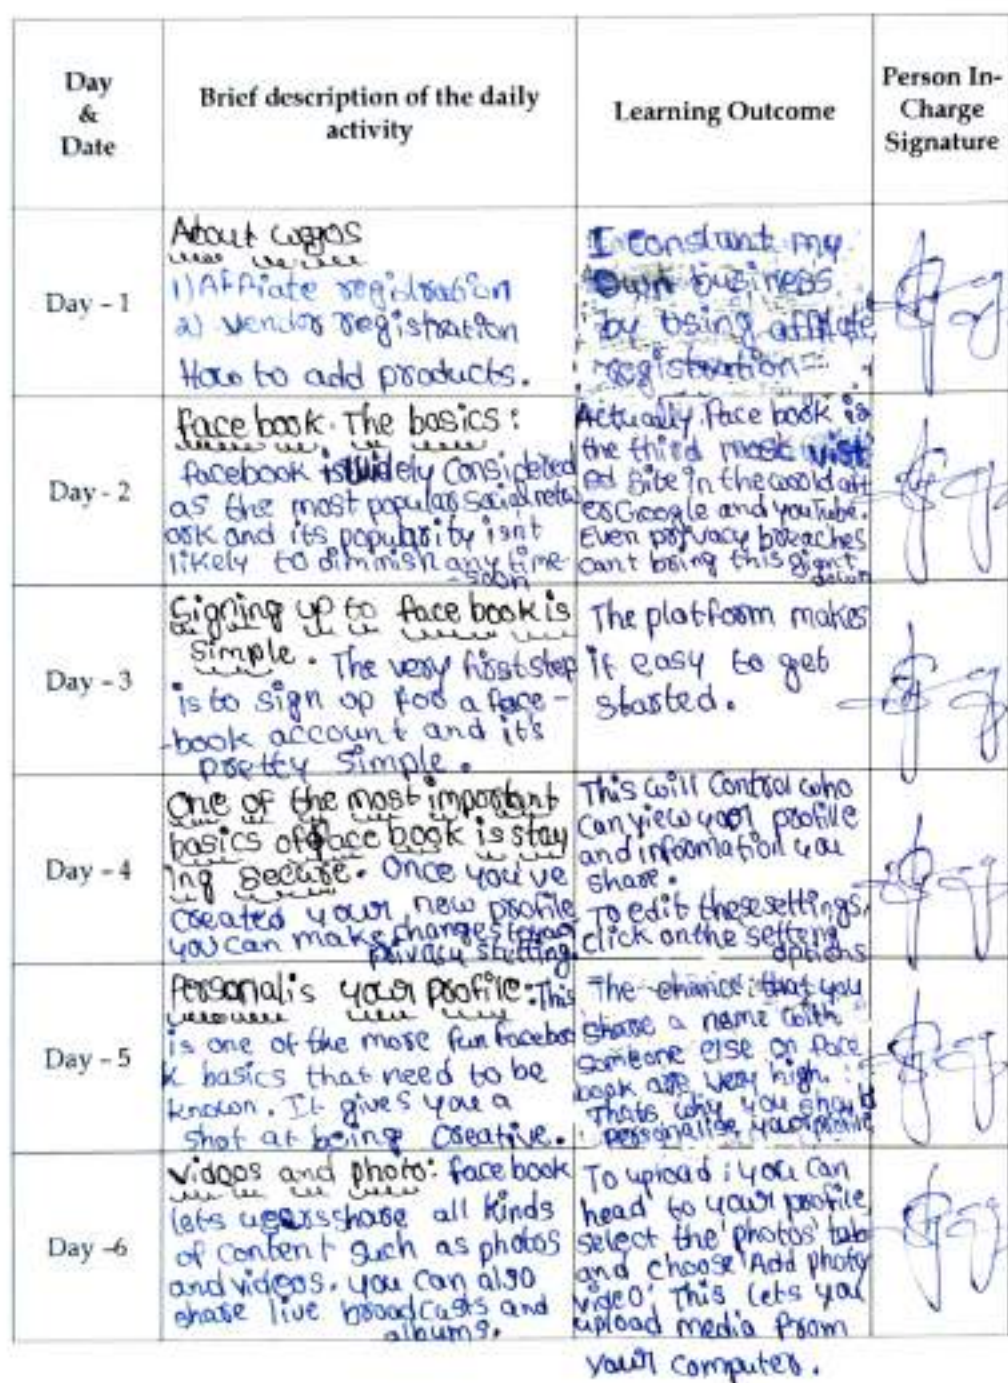 Day
&
Date
Brief description of the daily
activity
Learning Outcome
Person In-
Charge
Signature
Day - 1
About
1) Affiate registration
2) Vendor registration
How to add products.
I constant my
Own business
by using affilate
registration
Day - 2
face book. The basics:
facebook is widely considered
as the most popular social netw
ork and its popularity isnt
likely to dimmish any time
soon
Actually. Face book is
the third most vist
ed site in the world aft
er Google and youTube.
Even privacy breaches
cant bring this giant
down
Day - 3
Signing up to face book is
simple. The very first step
is to sign up for a face-
-book account and it's
pretty simple.
The platform makes
it easy to get
started.
Day - 4
One of the most important
basics of face book is stay
ing secure. Once you've
created your new profile
you can make changes to your
privacy stetting.
This will control who
can view your profille
and information you
share.
To edit these settings,
click on the setteng
options
Day - 5
Personalis your profile: This
is one of the more fun faceboo
k basics that need to be
known. It gives you a
shot at being creative.
The chance that you
share a name with
someone else on face
book are very high.
Thats why you should
personalise your profile
Day -6
Videos and photo: face book
lets users share all kinds
of content such as photos
and videos. you can also
share live broadcasts and
albums.
To upload; you can
head to your profile
select the 'photos' tab
and choose 'Add photo
video.' This lets you
upload media from
your computer.